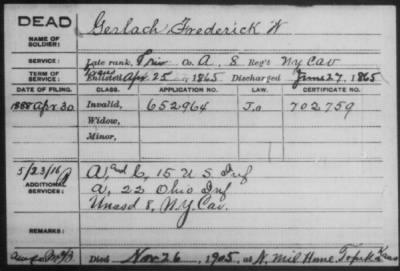 DEAD
NAME OF SOLDIER:
Gerlach Frederick W
SERVICE:
Late rank, Priv Co. A, 8 Reg't N.Y. Cav
TERM OF SERVICE:
Enlisted Apr. 25, 1865 Discharged June 27, 1865
DATE OF FILING. CLASS. APPLICATION NO. LAW. CERTIFICATE NO.
1888 Apr. 30 Invalid, 652964 702759
Widow,
Minor,
5/23/16
ADDITIONAL SERVICES:
A, and C, 15 U S Inf
A, 22 Ohio Inf
Unasd 8, N.Y. Cav.
REMARKS:
Died Nov 26, 1905, at N. Mil Home Topeka Kans